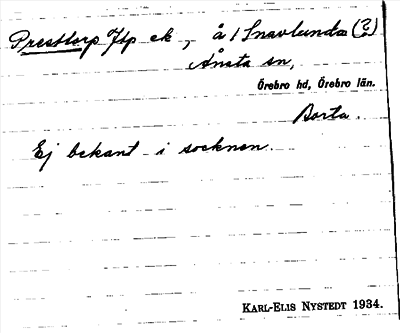 Presttorp Jtp ek, å/Snavlunda (?)
Ånsta sn,
Örebro hd, Örebro län.
Borta.
Ej bekant i socknen.
KARL-ELIS NYSTEDT 1934.